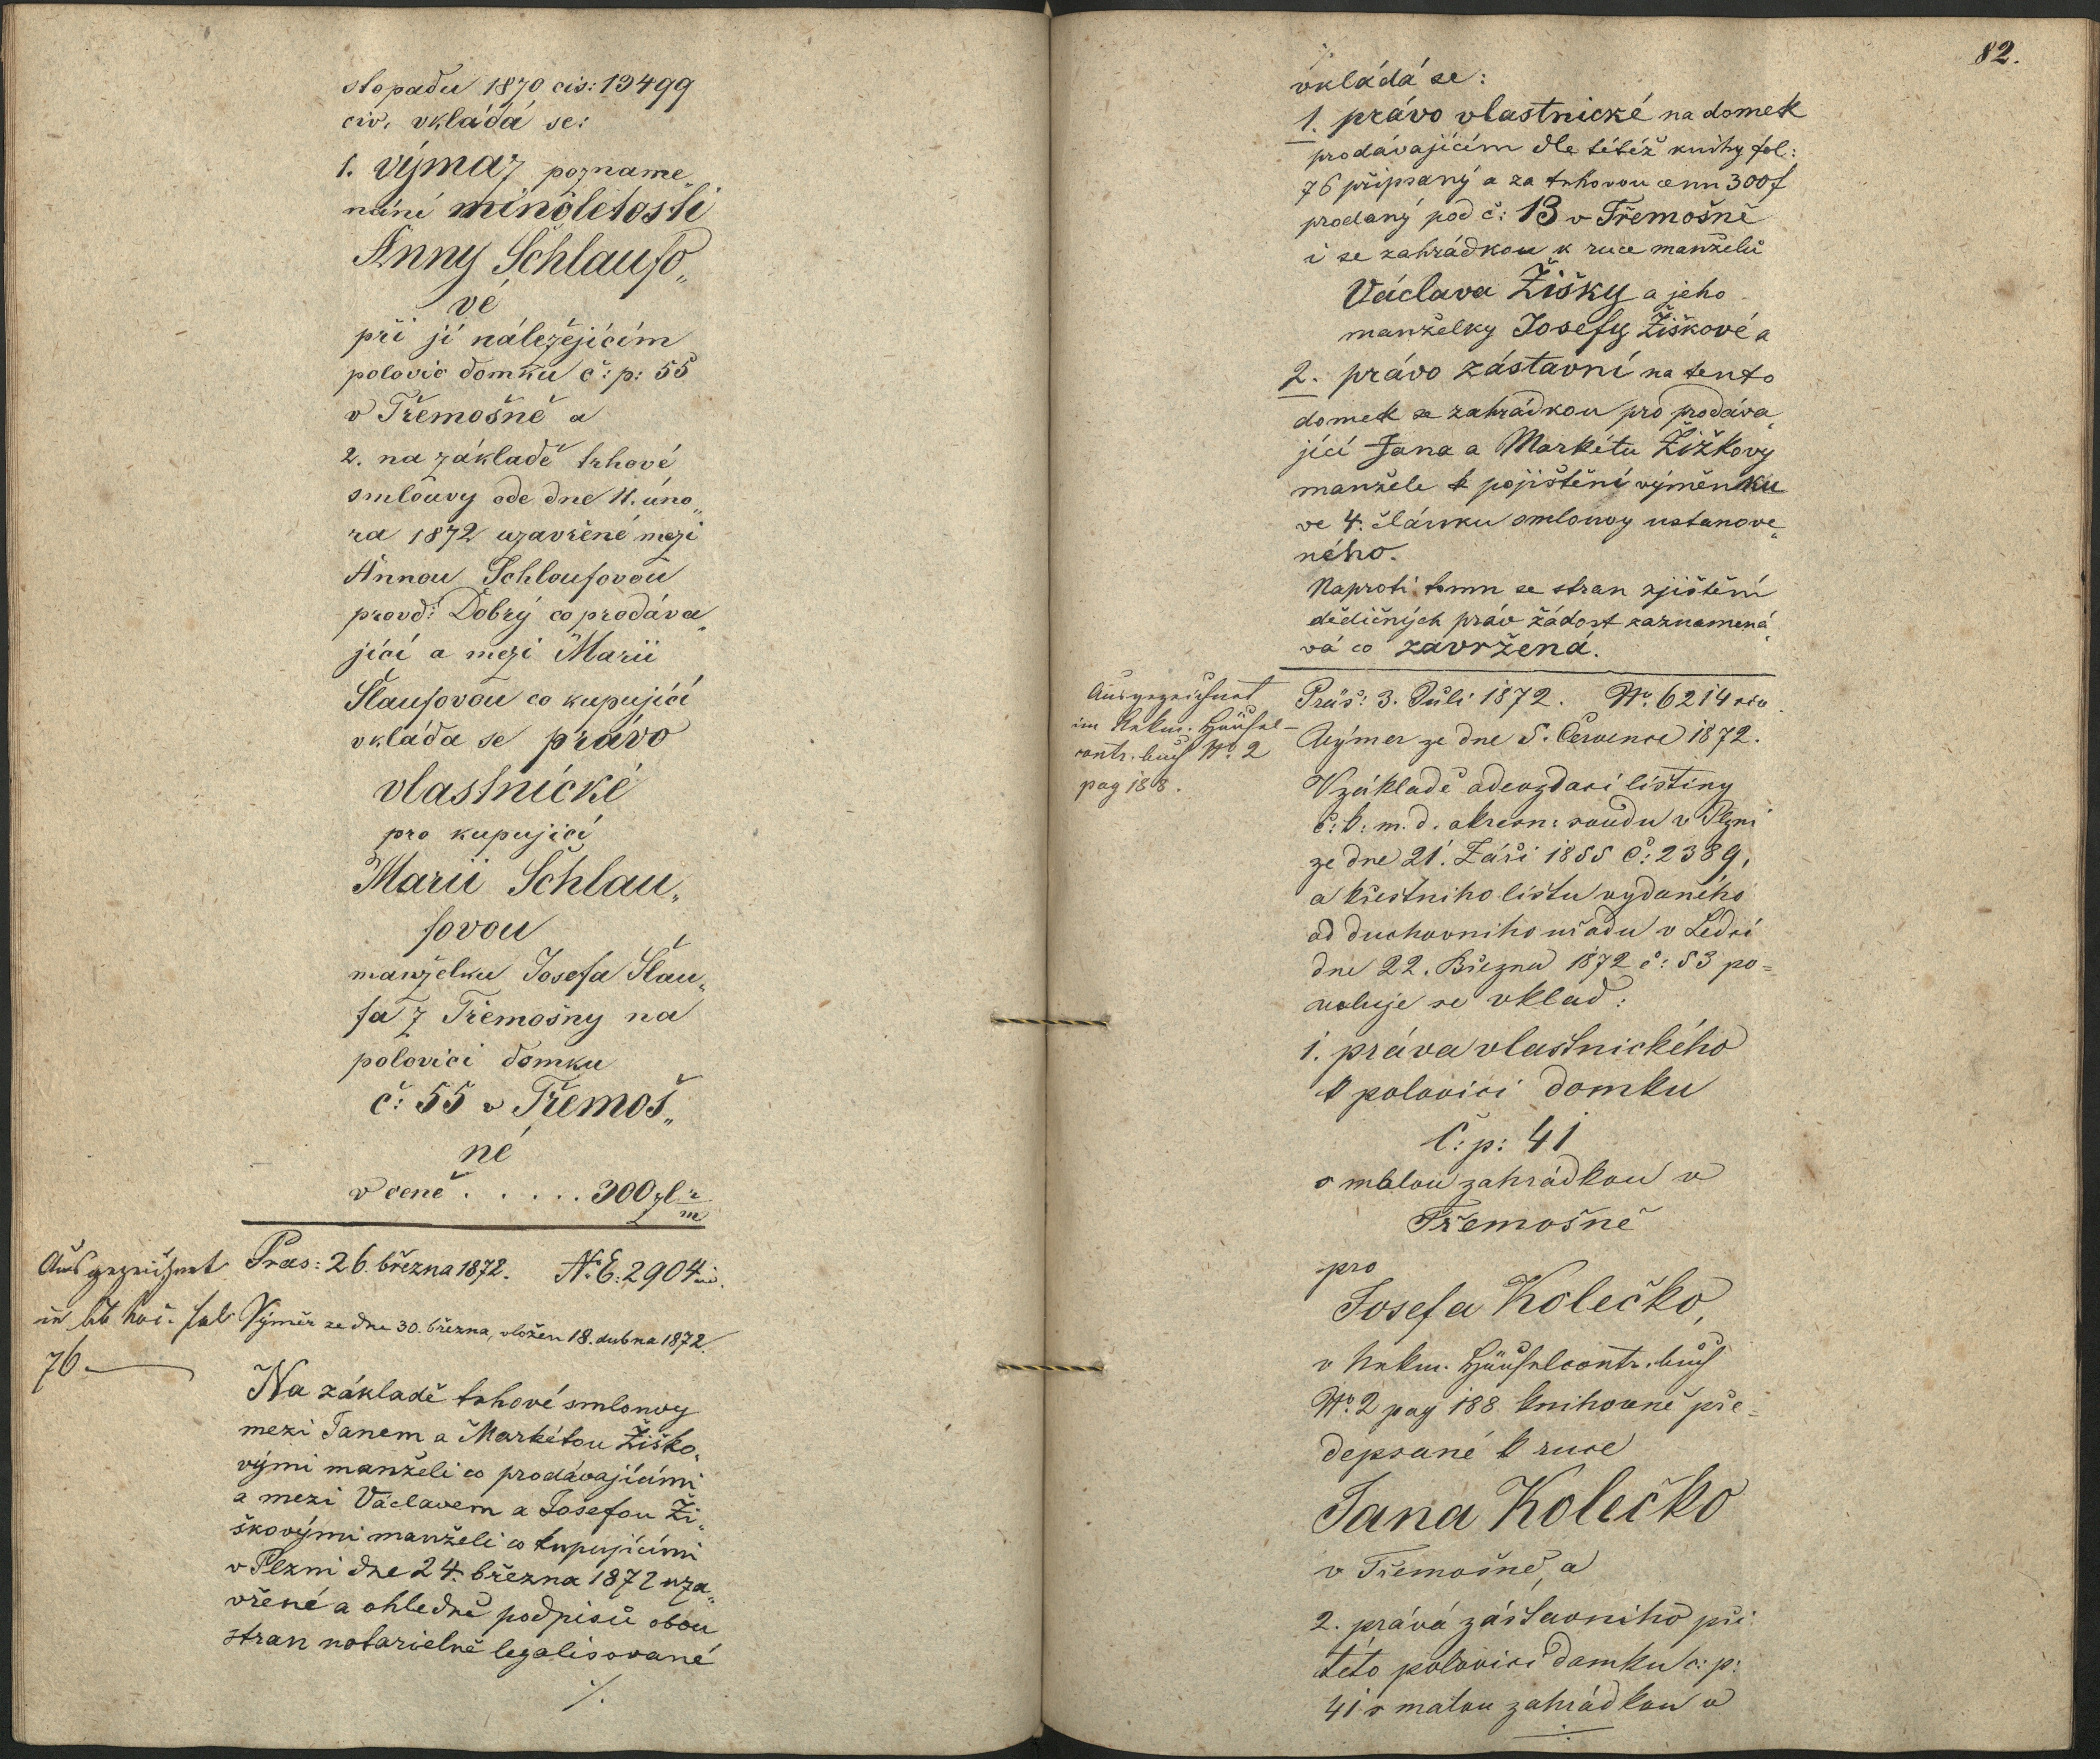 stopadu 1870 cis: 13499
civ. vkládá se:
1. výmaz pozname„
náni minoletosti
Anny Schlaufo„
vé
při jí náležejícím
polovic domku č: p: 55
v Třemošně a
2. na základě trhové
smlouvy ode dne 11. úno„
ra 1872 uzavřené mezi
Annou Schlaufovou
provd: Dobrý co prodáva„
jící a mezi Marii
Šlaufovou co kupující
vkláda se právo
vlastnické
pro kupující
Marii Schlau„
fovou
manželku Josefa Šlau„
fa z Třemošny na
polovici domku
č: 55 v Třemoš„
né
v ceně . . . . . 300 zl
Ausgezeichnet
76
Pras: 26. března 1872. No E: 2904
Výměr ze dne 30. března, vložen 18. dubna 1872.
Na základě trhové smlouvy
mezi Janem a Markétou Žiško„
vými manželi co prodávajícími
a mezi Václavem a Josefou Ži„
škovými manželi co kupujícími
v Plzni dne 24. března 1872 uza„
vřené a ohledně podpisů obou
stran notarielně legalisované
./.
82.
./.
vkládá se:
1. právo vlastnické na domek
prodávajícím dle tétéž knihy fol:
76 připsaný a za trhovou cenu 300 f
prodaný pod č: 13 v Třemošně
i se zahrádkou k ruce manželů
Václava Žišky a jeho
manželky Josefy Žiškové a
2. právo zástavní na tento
domek se zahrádkou pro prodáva„
jící Jana a Markétu Žižkovy
manžele k pojištění výměnku
ve 4. článku smlouvy ustanove„
ného.
Naproti tomu se stran zjištění
dědičných práv žádost zaznamená„
vá co zavržená.
Ausgezeichnet
im Häusel-
contr. buch No. 2
pag 188.
Präs: 3. Juli 1872. No. 6214 civ.
Výmer ze dne 5. Července 1872.
V základě odevzdací listiny
č: k: m. d. okresn: soudu v Plzni
ze dne 21. Září 1855 č: 2389,
a křestního listu vydaného
od duchovního uřadu v Ledcí
dne 22. Března 1872 č: 53 po=
voluje se vklad:
1. práva vlastnického
k polovici domku
č: p: 41
s malou zahrádkou v
Třemošně
pro
Josefa Kolečko,
v Häuselcontr. buch
No. 2 pag 188 knihovně pře=
depsané k ruce
Jana Kolečko
v Třemošně, a
2. práva zástavního při
této polovici domku č: p:
41 s malou zahrádkou v
./.